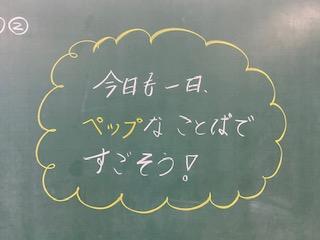 ②
今日も一日、
ペップな ことばで
すごそう!